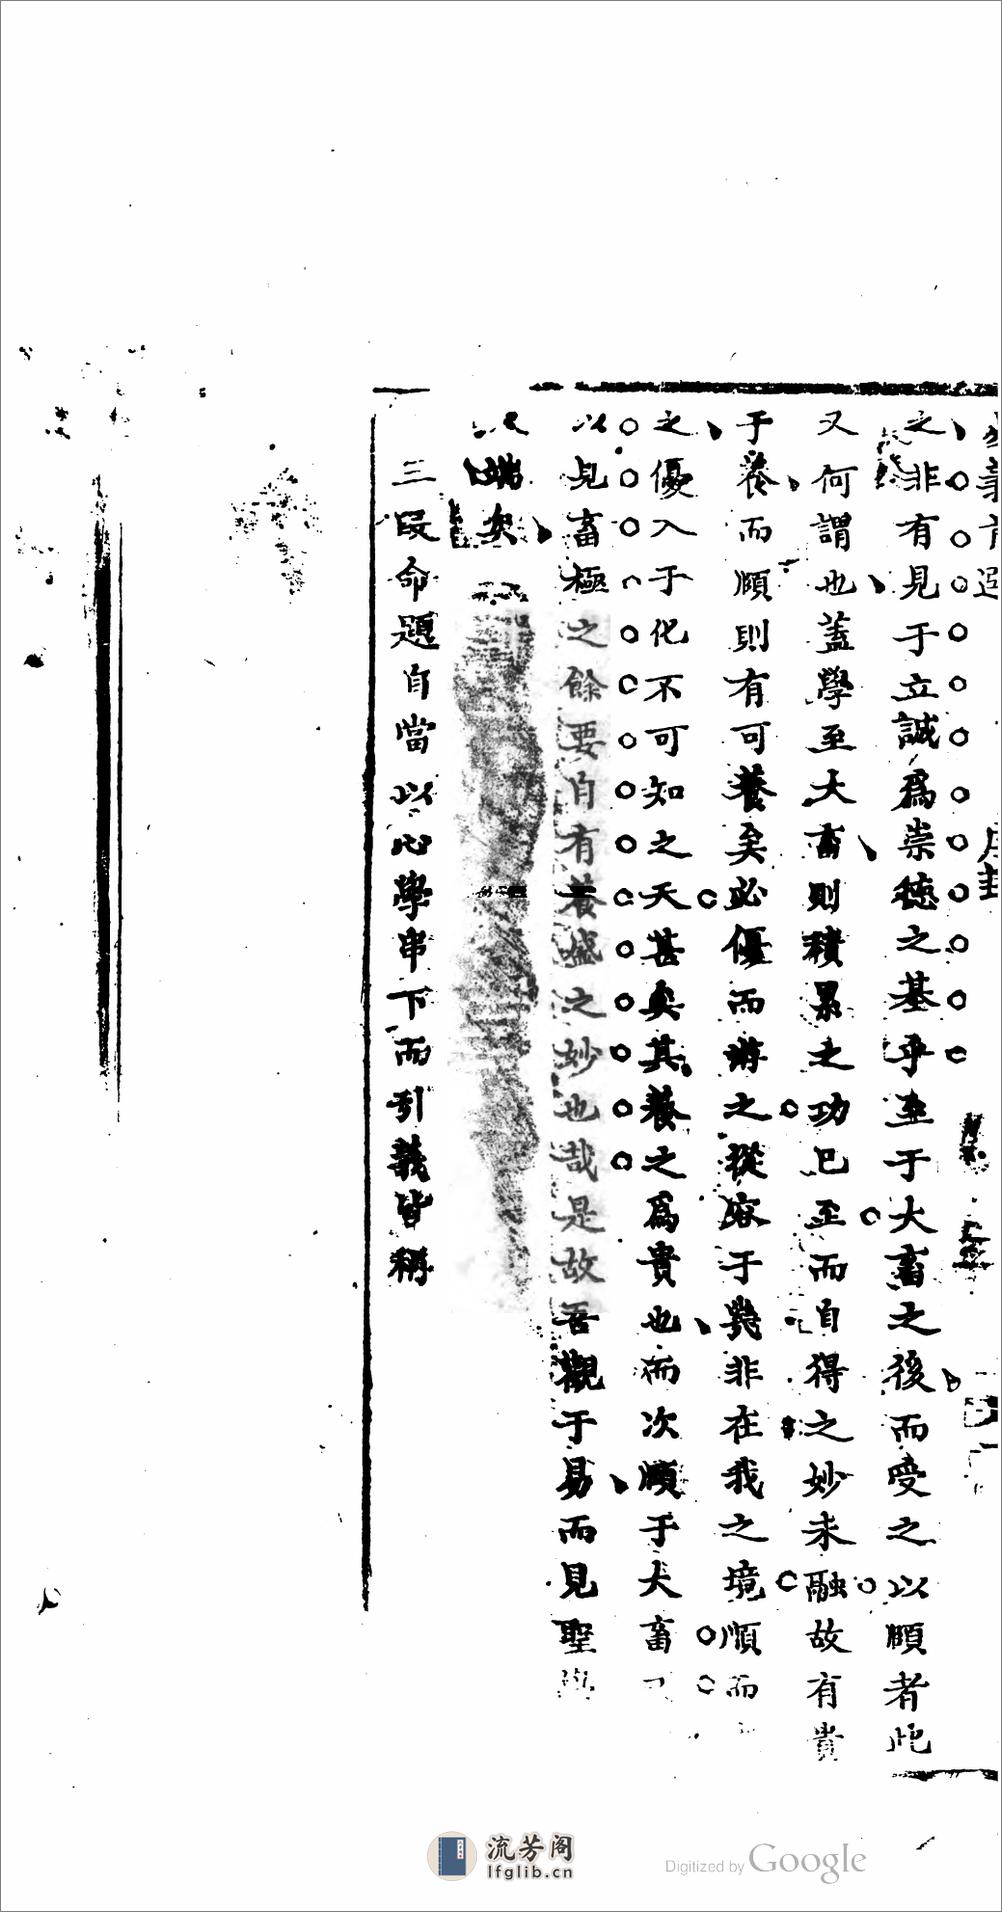 之非有見于立誠爲崇德之基乎至于大畜之後而受之以頤者此
又何謂也蓋學至大畜則積累之功已至而自得之妙未融故有貴
于養而頤則有可養矣必優而游之從容于勢非在我之境順而
之優入于化不可知之天甚矣其養之爲貴也而次頤于大畜
以見畜極之餘要自有養盛之妙也哉是故吾觀于易而見聖
端矣
三段命題自當以心學串下而引義皆稱
流芳阁
lfglib.cn
Digitized by Google